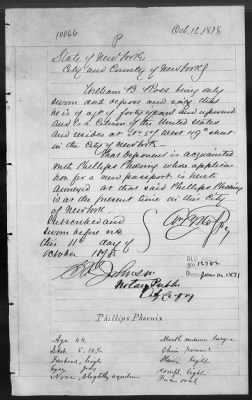 10066
P
Oct. 12, 1878
State of New York
City and County of New York
William B. Ross being duly
sworn doth depose and says that
he is of age of forty years and upward
and is a Citizen of the United States
and resides at No. 57 West 49th Street
in the City of New York.
That deponent is acquainted
with Phillips Phoenix whose application
for a new passport is hereto
annexed and that said Phillips Phoenix
is at the present time in this City
of New York
Subscribed and
sworn before me
this 11th day of
October 1878
Notary Public
Phillips Phoenix
Age 44
Stat. 5. 10 ½
Forehead, high
Eyes gray
Nose Slightly aquiline
Mouth large
Chin round
Hair light
Comp. light
Face oval